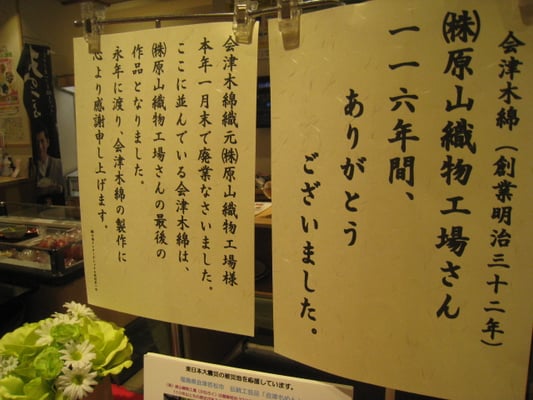 会津木綿（創業明治三十二年）
㈱原山織物工場さん
一一六年間、
ありがとう
ございました。
会津木綿織元㈱原山織物工場様
本年一月末で廃業なさいました。
ここに並んでいる会津木綿は、
㈱原山織物工場さんの最後の
作品となりました。
永年に渡り、会津木綿の製作に
心より感謝申し上げます。
東日本大震災の被災地を応援しています。
福島県会津若松市　伝統工芸品「会津もめん